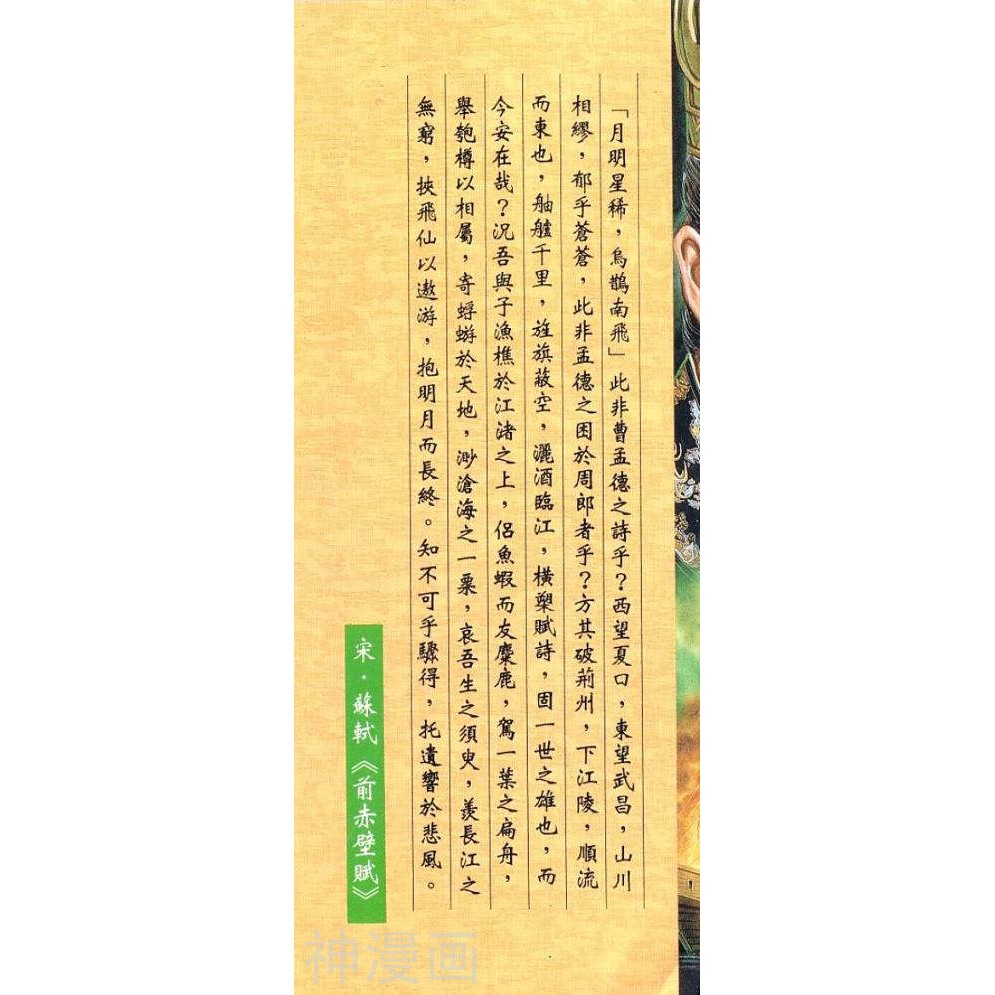 「月明星稀，烏鵲南飛」此非曹孟德之詩乎？西望夏口，東望武昌，山川
相繆，郁乎蒼蒼，此非孟德之困於周郎者乎？方其破荊州，下江陵，順流
而東也，舳艫千里，旌旗蔽空，灑酒臨江，橫槊賦詩，固一世之雄也，而
今安在哉？況吾與子漁樵於江渚之上，侶魚蝦而友麋鹿，駕一葉之扁舟，
舉匏樽以相屬，寄蜉蝣於天地，渺滄海之一粟，哀吾生之須臾，羨長江之
無窮，挾飛仙以遨游，抱明月而長終。知不可乎驟得，托遺響於悲風。
宋．蘇軾《前赤壁賦》
神漫画